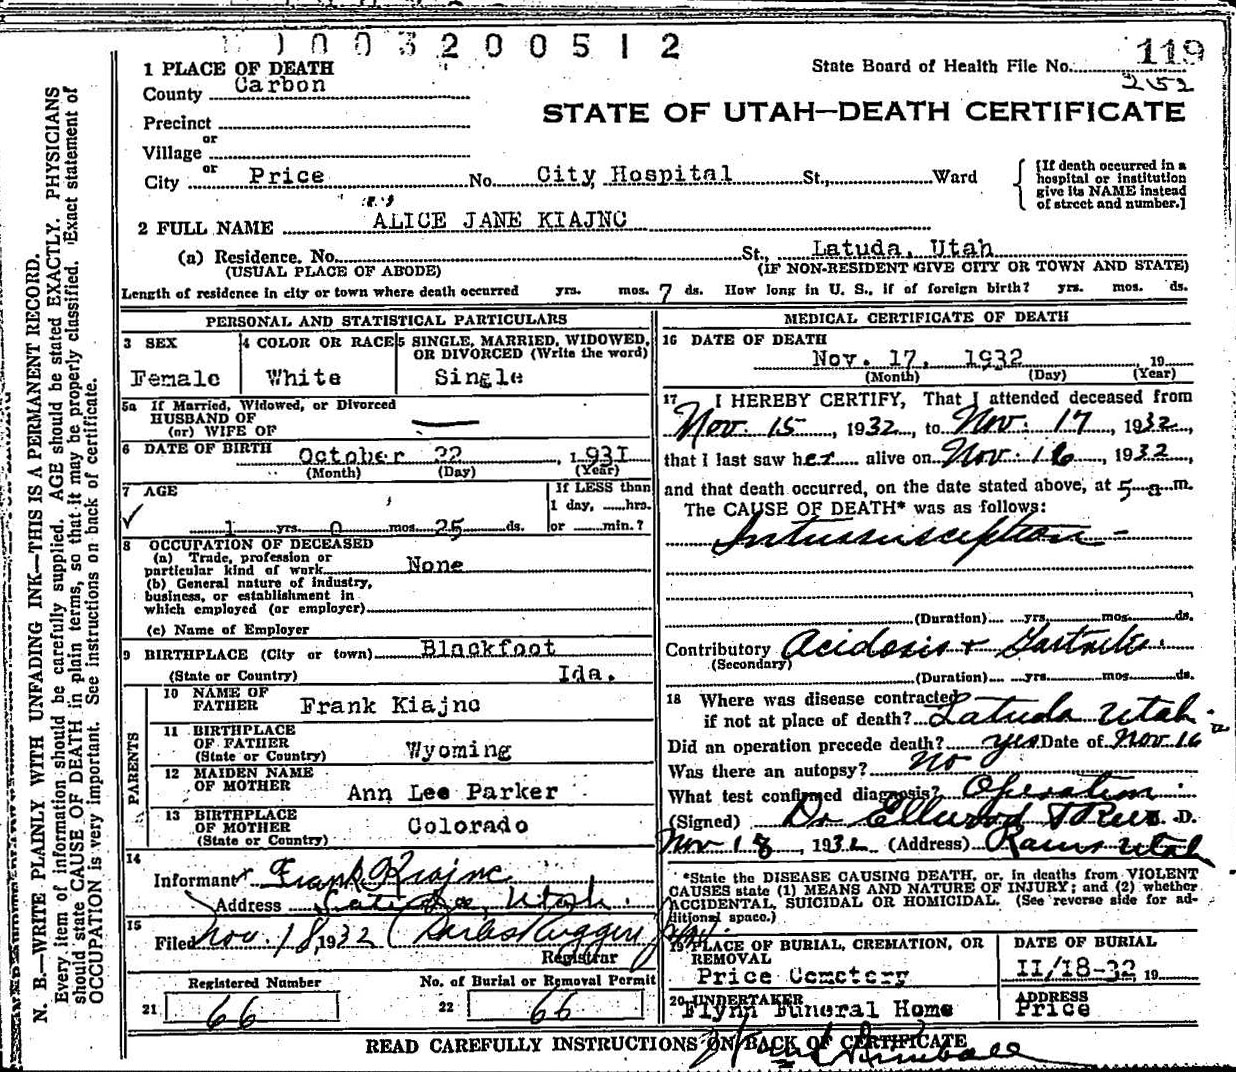 1003200512
119
State Board of Health File No.
252
1 PLACE OF DEATH
County Carbon
STATE OF UTAH—DEATH CERTIFICATE
Precinct
or
Village
or
City Price No. City Hospital St., Ward
[If death occurred in a
hospital or institution
give its NAME instead
of street and number.]
2 FULL NAME ALICE JANE KIAJNC
(a) Residence. No. St., Latuda, Utah
(USUAL PLACE OF ABODE) (IF NON-RESIDENT GIVE CITY OR TOWN AND STATE)
Length of residence in city or town where death occurred yrs. mos. 7 ds. How long in U. S., if of foreign birth? yrs. mos. ds.
PERSONAL AND STATISTICAL PARTICULARS
3 SEX
Female
4 COLOR OR RACE
White
5 SINGLE, MARRIED, WIDOWED,
OR DIVORCED (Write the word)
Single
5a If Married, Widowed, or Divorced
HUSBAND OF
(or) WIFE OF
6 DATE OF BIRTH October 22, 1931
(Month) (Day) (Year)
7 AGE
1 yrs. 0 mos. 25 ds.
If LESS than
1 day, hrs.
or min.?
8 OCCUPATION OF DECEASED
(a) Trade, profession or
particular kind of work None
(b) General nature of industry,
business, or establishment in
which employed (or employer)
(c) Name of Employer
9 BIRTHPLACE (City or town) Blackfoot
(State or Country) Ida.
PARENTS
10 NAME OF
FATHER Frank Kiajnc
11 BIRTHPLACE
OF FATHER Wyoming
(State or Country)
12 MAIDEN NAME
OF MOTHER Ann Lee Parker
13 BIRTHPLACE
OF MOTHER Colorado
(State or Country)
14
Informant Frank Kiajnc
Address Latuda, Utah.
15
Filed Nov. 18, 1932
Registrar
Registered Number
21 66
No. of Burial or Removal Permit
22 66
MEDICAL CERTIFICATE OF DEATH
16 DATE OF DEATH
Nov. 17, 1932 19
(Month) (Day) (Year)
17 I HEREBY CERTIFY, That I attended deceased from
Nov. 15, 1932, to Nov. 17, 1932,
that I last saw her alive on Nov. 16, 1932,
and that death occurred, on the date stated above, at 5 a.m.
The CAUSE OF DEATH* was as follows:
Intussusception
(Duration) yrs. mos. ds.
Contributory Acidosis + Gastritis
(Secondary)
(Duration) yrs. mos. ds.
18 Where was disease contracted
if not at place of death? Latuda Utah.
Did an operation precede death? yes Date of Nov 16
Was there an autopsy? No
What test confirmed diagnosis? Operation
(Signed) Dr Ellwood D.
Nov 18, 1932 (Address) Rains Utah
*State the DISEASE CAUSING DEATH, or, in deaths from VIOLENT
CAUSES state (1) MEANS AND NATURE OF INJURY; and (2) whether
ACCIDENTAL, SUICIDAL OR HOMICIDAL. (See reverse side for ad-
ditional space.)
19 PLACE OF BURIAL, CREMATION, OR
REMOVAL
Price Cemetery
DATE OF BURIAL
11/18-32 19
20 UNDERTAKER
Flynn Funeral Home
ADDRESS
Price
READ CAREFULLY INSTRUCTIONS ON BACK OF CERTIFICATE
N. B.—WRITE PLAINLY WITH UNFADING INK—THIS IS A PERMANENT RECORD.
Every item of information should be carefully supplied. AGE should be stated EXACTLY. PHYSICIANS
should state CAUSE OF DEATH in plain terms, so that it may be properly classified. Exact statement of
OCCUPATION is very important. See instructions on back of certificate.